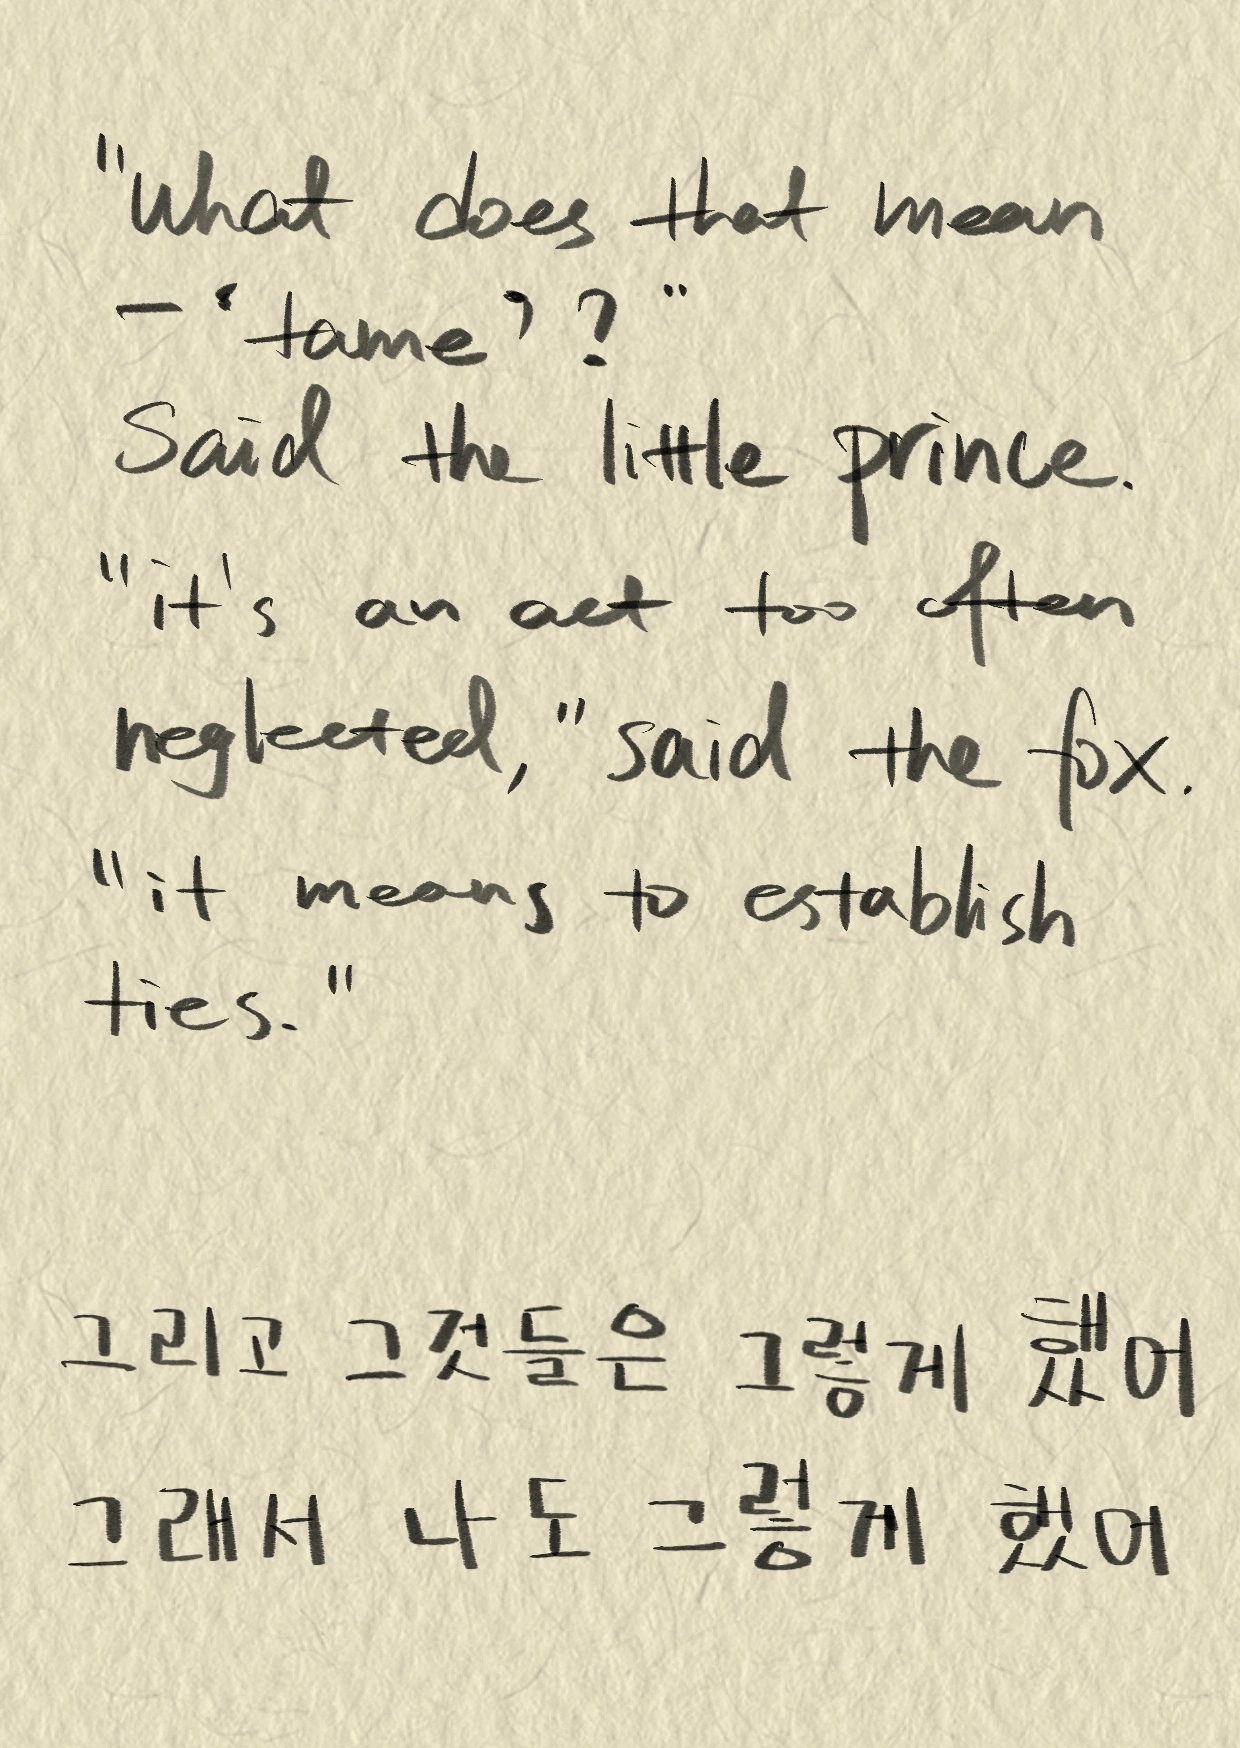 "What does that mean
- 'tame'?"
Said the little prince.
"it's an act too often
neglected," said the fox.
"it means to establish
ties."
그리고 그것들은 그렇게 했어
그래서 나도 그렇게 했어